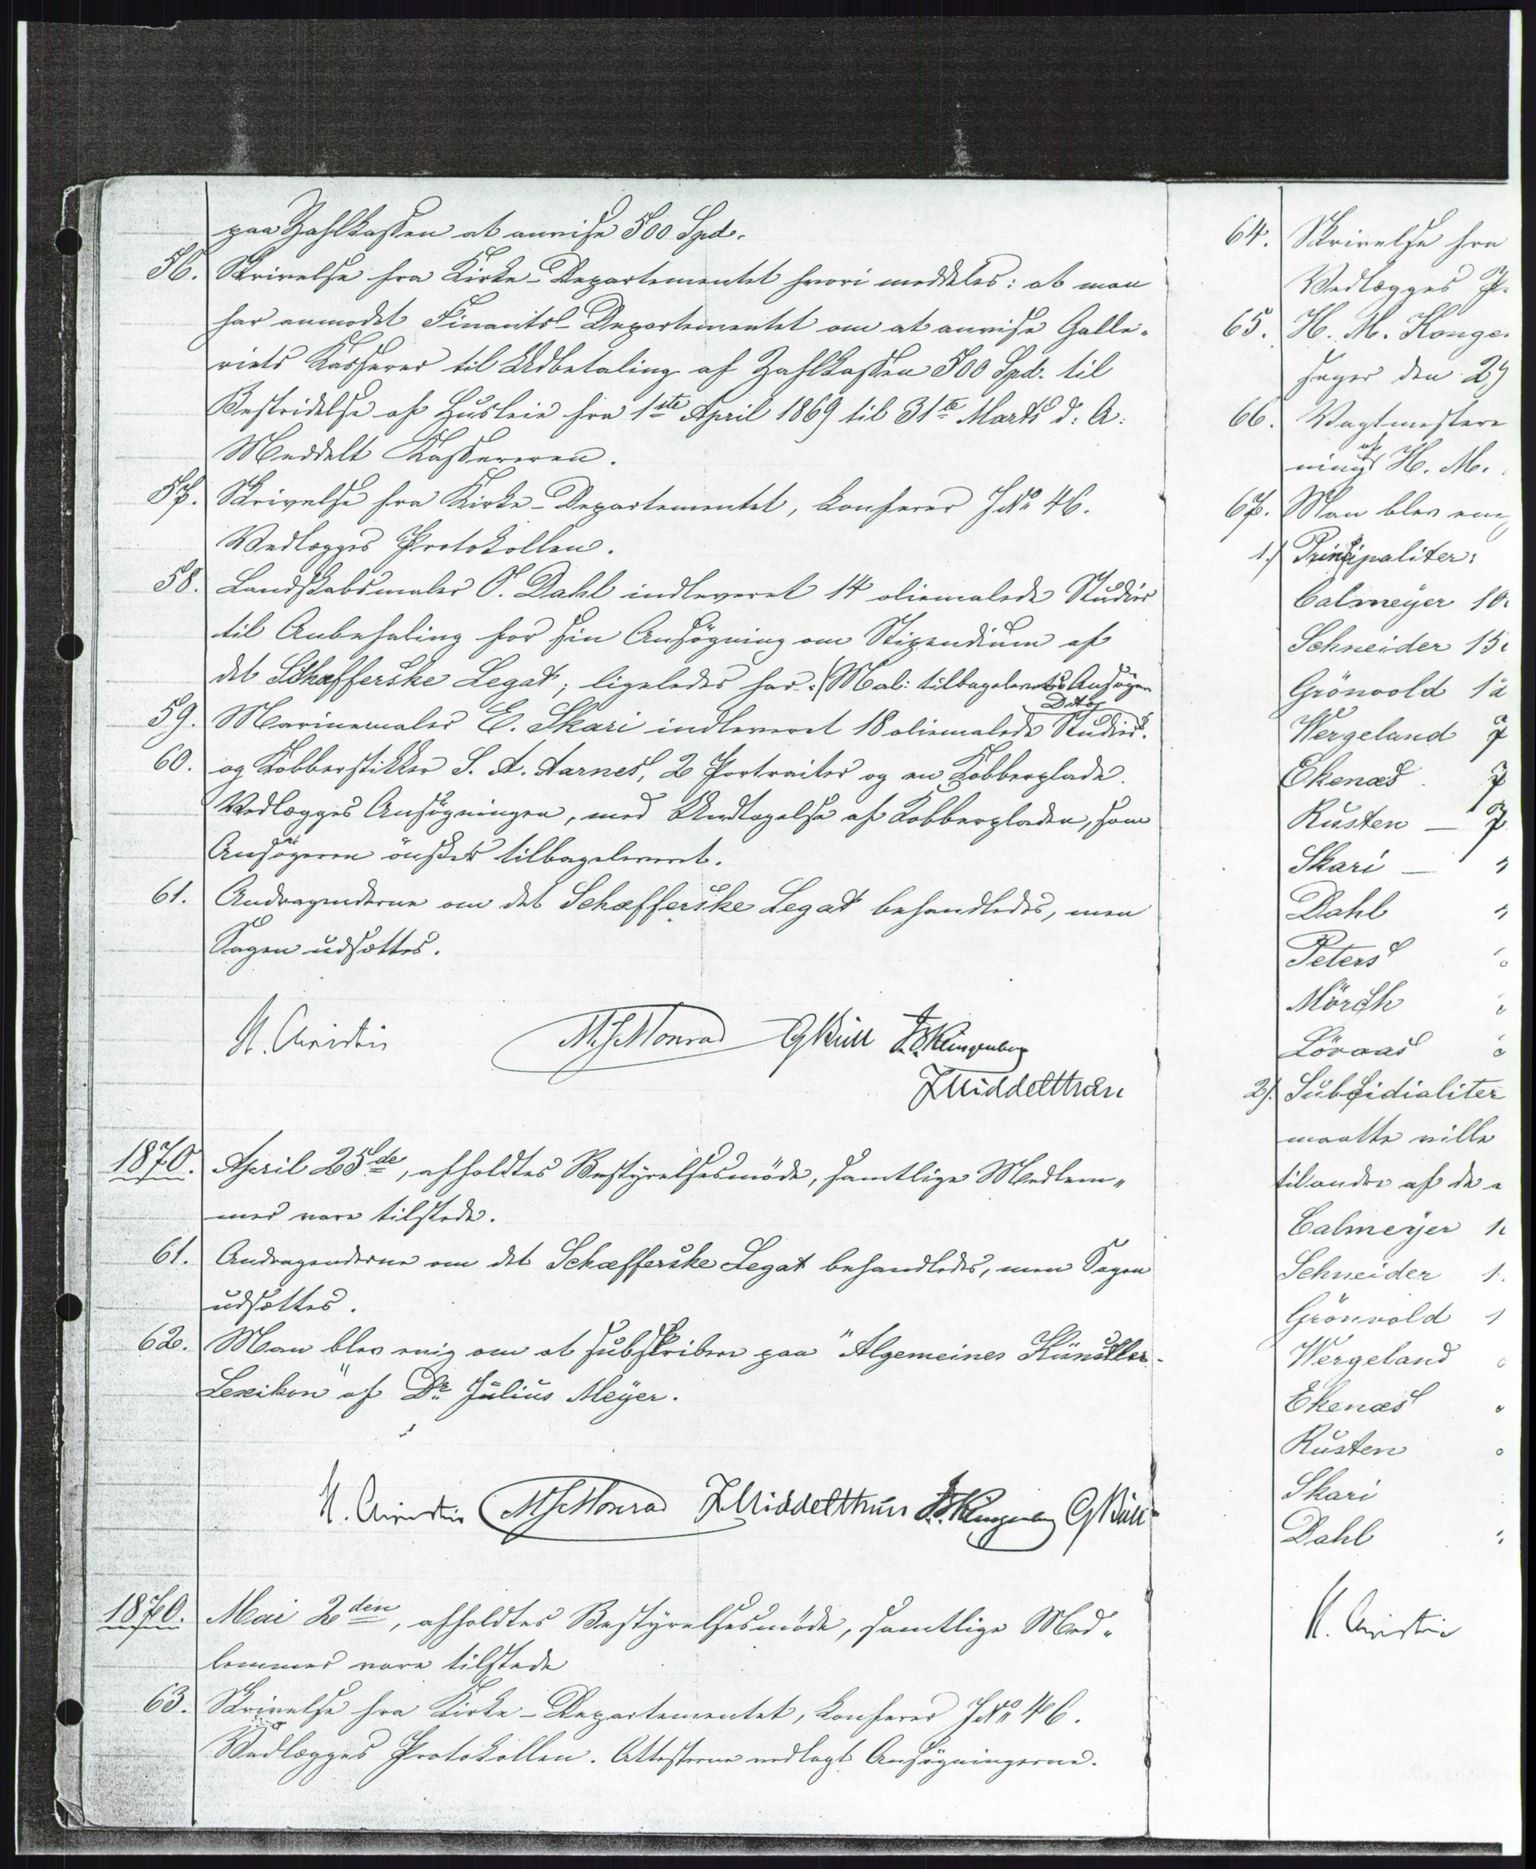 paa Zahlkassen at anvise 500 Spd.
56. Skrivelse fra Kirke-Departementet hvori meddeles: at man
har anmodet Finants-Departementet om at anvise Galle-
riets Kasserer til Udbetaling af Zahlkassen 500 Spd. til
Bestridelse af Husleie fra 1ste April 1869 til 31te Marts d: A:
Meddelt Kassereren.
57. Skrivelse fra Kirke-Departementet, Conferer J№ 46.
Vedlægges Protokollen.
58. Landskabsmaler O. Dahl indleveret 14 oliemalede Studier
til Anbefaling for sin Ansögning om Stipendium af
det Schæfferske Legat; ligeledes har
59. Marinemaler E. Skari indleveret 18 oliemalede Studier.
60. og Kobberstikker S. A. Aarnes, 2 Portraiter og en Kobberplade.
Vedlægges Ansögningen, med Undtagelse af Kobberpladen, som
Ansögeren önsker tilbageleveret.
61. Andragenderne om det Schæfferske Legat behandledes, men
Sagen udsattes.
H. Christie M J Monrad G Bull Klingenberg
J Middelthun
1870. April 25de, afholdtes Bestyrelsesmöde, samtlige Medlem„
mer vare tilstede.
61. Andragenderne om det Schæfferske Legat behandledes, men Sagen
udsattes.
62. Man blev enig om at subskribere paa "Algemeines Künstler-
Lexikon" af Dr Julius Meyer.
H. Christie M J Monrad J Middelthun Klingenberg G Bull
1870. Mai 2den, afholdtes Bestyrelsesmöde, samtlige Med„
lemmer vare tilstede
63. Skrivelse fra Kirke-Departementet, Conferer J№ 46.
Vedlægges Protokollen. Attesterne vedlagt Ansögningerne.
64. Skrivelse fra
Vedlægges
65. H. M. Konge
den 27
66. Vagtmestere
af H. M.
67. Man blev
1.) Principaliter:
Calmeyer
Schneider
Grönvold
Wergeland
Ekenæs
Rusten —
Skari —
Dahl
Peters
Mörch
Lövaas
2). Subsidialiter
maatte ville
tilandre af de
Calmeyer
Schneider
Grönvold
Wergeland
Ekenæs
Rusten
Skari
Dahl
H. Christie